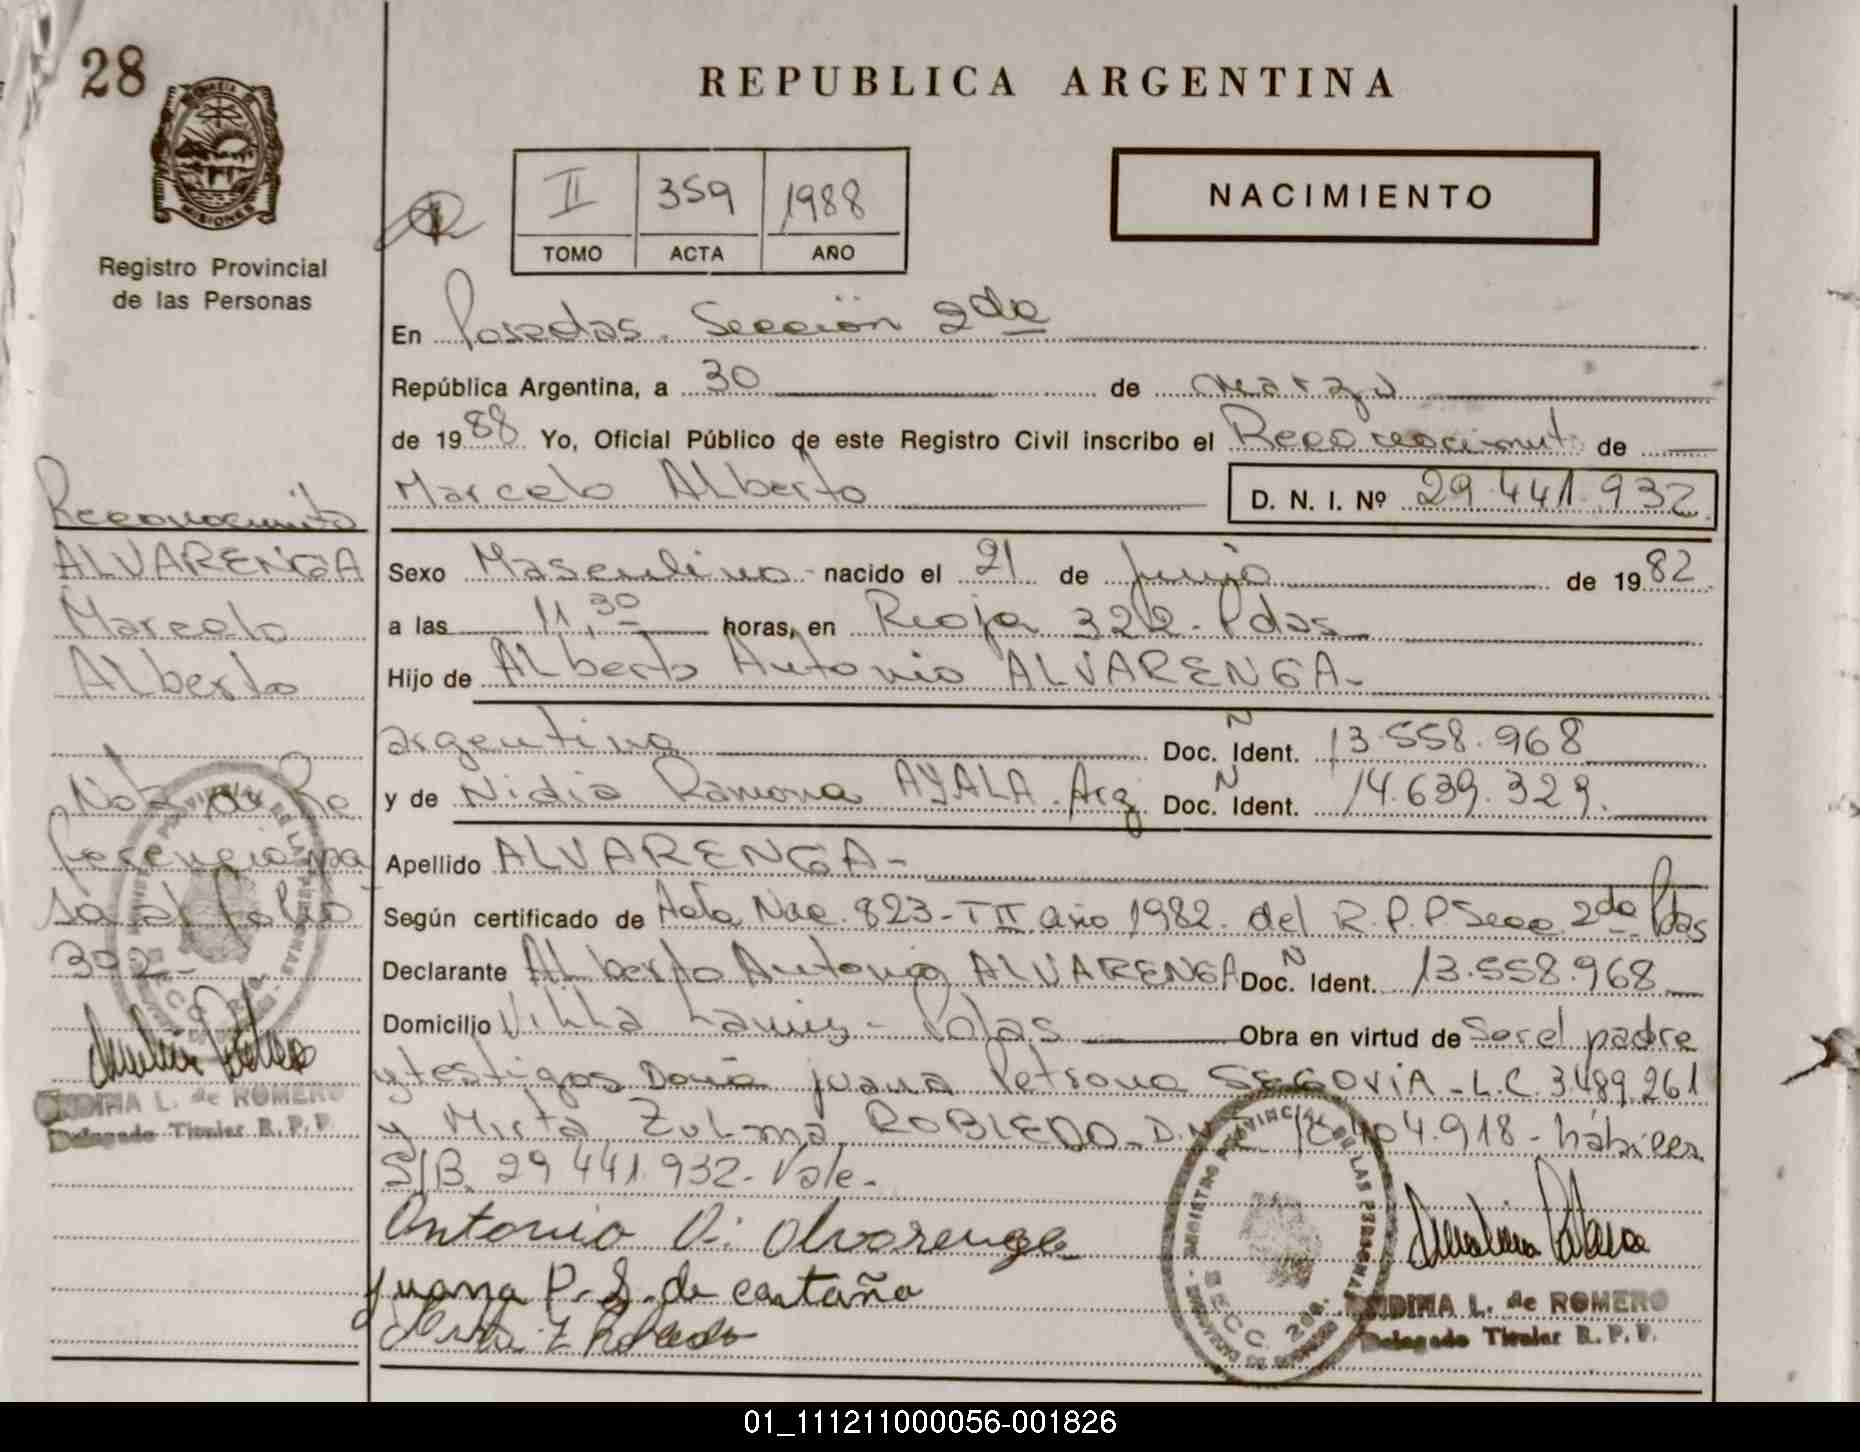 28
MISIONES
Registro Provincial
de las Personas
REPUBLICA ARGENTINA
II 359 1988
TOMO ACTA AÑO
NACIMIENTO
En Posadas. Sección 2da
República Argentina, a 30 de marzo
de 1988 Yo, Oficial Público de este Registro Civil inscribo el Reconocimiento de
Marcelo Alberto D. N. I. Nº 29.441.932
Sexo Masculino nacido el 21 de junio de 1982
a las 11,30 horas, en Rioja 322 - Pdas
Hijo de Alberto Antonio ALVARENGA-
argentino Doc. N Ident. 13.558.968
y de Nidia Ramona AYALA. Arg Doc. N Ident. 14.639.329.
Apellido ALVARENGA-
Según certificado de Acta Nac. 823-T II año 1982. del R.P.P. Secc 2da Pdas
Declarante Alberto Antonio ALVARENGA Doc. N Ident. 13.558.968
Domicilio Villa Lanús - Pdas Obra en virtud de Ser el padre
y testigos Doña Juana Petrona SEGOVIA - L.C. 3.489.261
y Mirta Zulma ROBLEDO - D.N 4.918 - hábiles
S/B. 29.441.932 - Vale.
Antonio A. Alvarenga
Juana P. S. de castaño
Mirta Z Robledo
Reconocimiento
ALVARENGA
Marcelo
Alberto
Nota de Re
ferencia pa
sa al folio
302-
L. de ROMERO
Delegado Titular R. P. P.
REGISTRO PROVINCIAL DE LAS PERSONAS
L. de ROMERO
Delegado Titular R. P. P.
01_111211000056-001826